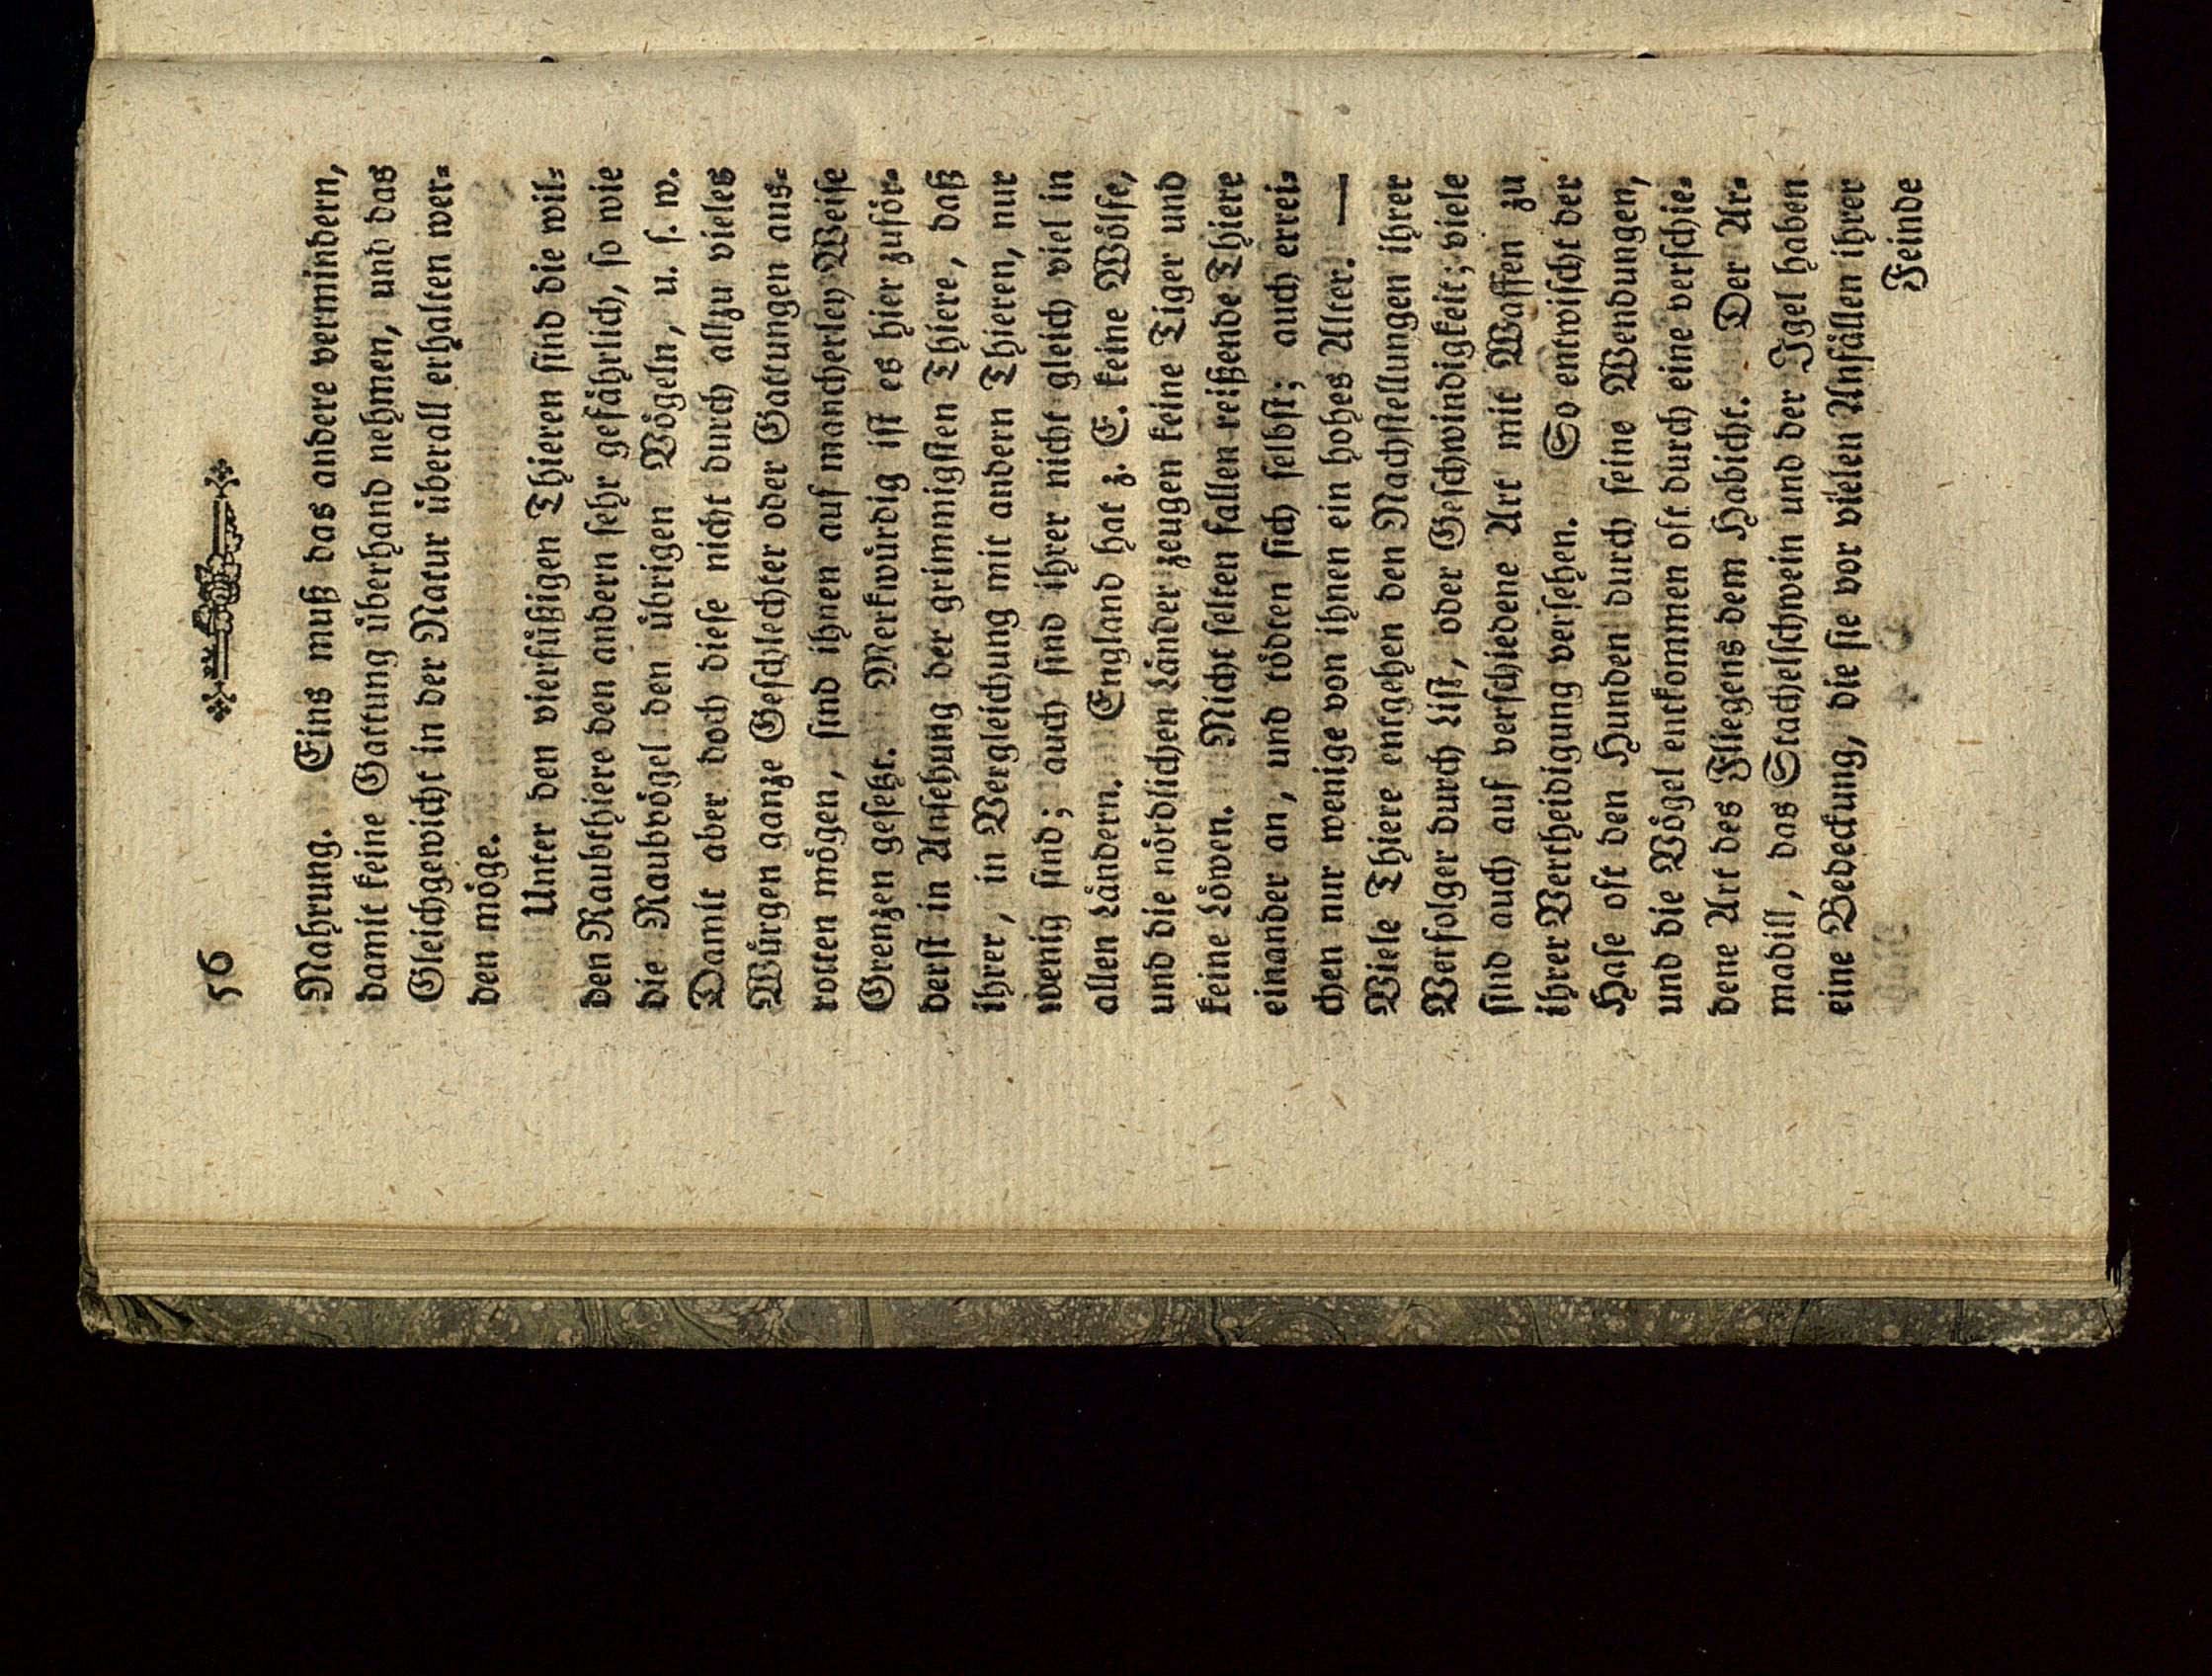 56
Nahrung. Eins muß das andere vermindern,
damit keine Gattung überhand nehmen, und das
Gleichgewicht in der Natur überall erhalten wer⸗
den möge.
Unter den vierfüßigen Thieren sind die wil⸗
den Raubthiere den andern sehr gefährlich, so wie
die Raubvögel den übrigen Vögeln, u. s. w.
Damit aber doch diese nicht durch allzu vieles
Würgen ganze Geschlechter oder Gattungen aus⸗
rotten mögen, sind ihnen auf mancherley Weise
Grenzen gesetzt. Merkwürdig ist es hier zuför⸗
derst in Ansehung der grimmigsten Thiere, daß
ihrer, in Vergleichung mit andern Thieren, nur
wenig sind; auch sind ihrer nicht gleich viel in
allen Ländern. England hat z. E. keine Wölfe,
und die nördlichen Länder zeugen keine Tiger und
keine Löwen. Nicht selten fallen reißende Thiere
einander an, und tödten sich selbst; auch errei⸗
chen nur wenige von ihnen ein hohes Alter. —
Viele Thiere entgehen den Nachstellungen ihrer
Verfolger durch List, oder Geschwindigkeit; viele
sind auch auf verschiedene Art mit Waffen zu
ihrer Vertheidigung versehen. So entwischt der
Hase oft den Hunden durch seine Wendungen,
und die Vögel entkommen oft durch eine verschie⸗
dene Art des Fliegens dem Habicht. Der Ar⸗
madill, das Stachelschwein und der Igel haben
eine Bedeckung, die sie vor vielen Anfällen ihrer
Feinde